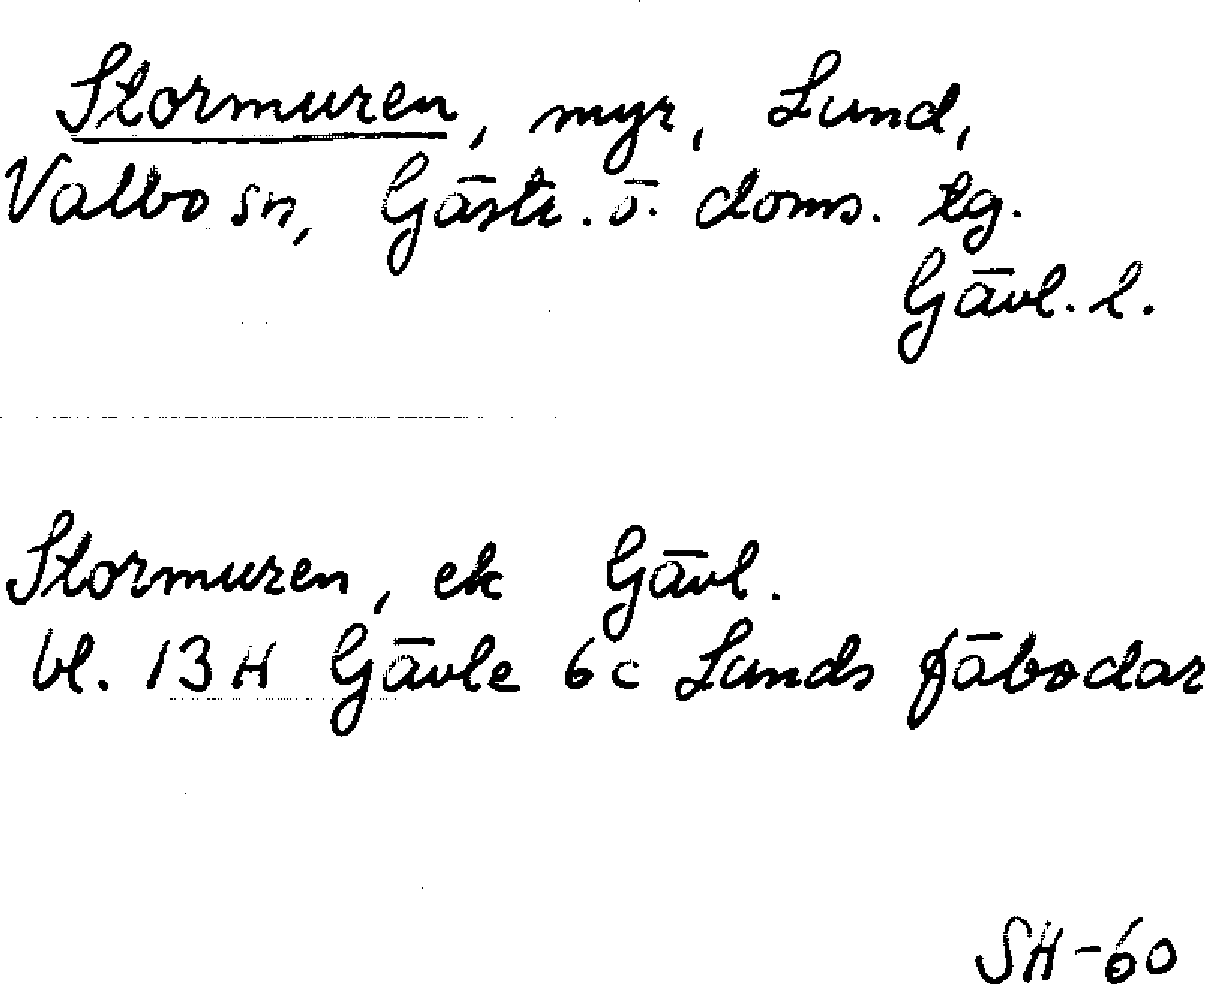 Stormuren, myr, Lund,
Valbo sn, Gästr. ö. doms. tg.
Gävl. l.
Stormuren, ek Gävl.
bl. 13H Gävle 6c Lunds fäbodar
SH-60